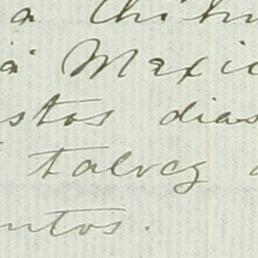 a Chihu
á Mexic
stos dias
talvez
ntos.